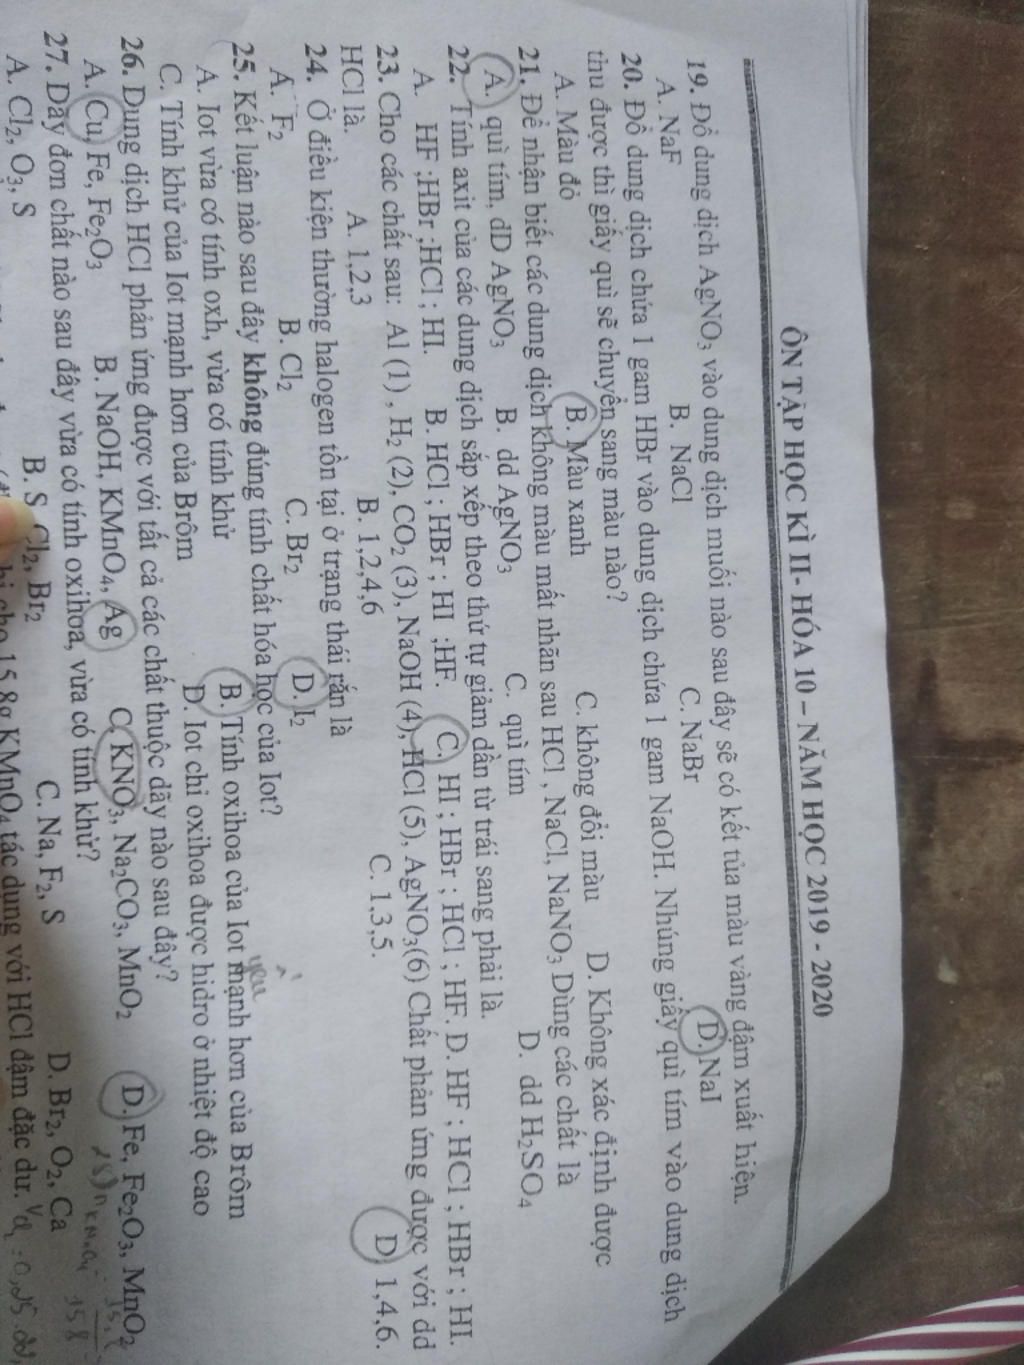 ÔN TẬP HỌC KÌ II- HÓA 10 – NĂM HỌC 2019 - 2020
19. Đổ dung dịch AgNO3 vào dung dịch muối nào sau đây sẽ có kết tủa màu vàng đậm xuất hiện.
A. NaF B. NaCl C. NaBr D. NaI
20. Đổ dung dịch chứa 1 gam HBr vào dung dịch chứa 1 gam NaOH. Nhúng giấy quì tím vào dung dịch
thu được thì giấy quì sẽ chuyển sang màu nào?
A. Màu đỏ B. Màu xanh C. không đổi màu D. Không xác định được
21. Để nhận biết các dung dịch không màu mất nhãn sau HCl , NaCl, NaNO3 Dùng các chất là
A. quì tím, dD AgNO3 B. dd AgNO3 C. quì tím D. dd H2SO4
22. Tính axit của các dung dịch sắp xếp theo thứ tự giảm dần từ trái sang phải là.
A. HF ;HBr ;HCl ; HI. B. HCl ; HBr ; HI ;HF. C. HI ; HBr ; HCl ; HF. D. HF ; HCl ; HBr ; HI.
23. Cho các chất sau: Al (1) , H2 (2), CO2 (3), NaOH (4), HCl (5), AgNO3(6) Chất phản ứng được với dd
HCl là. A. 1,2,3 B. 1,2,4,6 C. 1,3,5. D 1,4,6.
24. Ở điều kiện thường halogen tồn tại ở trạng thái rắn là
A. F2 B. Cl2 C. Br2 D. I2
25. Kết luận nào sau đây không đúng tính chất hóa học của Iot?
yếu
A. Iot vừa có tính oxh, vừa có tính khử B. Tính oxihoa của Iot mạnh hơn của Brôm
C. Tính khử của Iot mạnh hơn của Brôm D. Iot chi oxihoa được hidro ở nhiệt độ cao
26. Dung dịch HCl phản ứng được với tất cả các chất thuộc dãy nào sau đây?
A. Cu, Fe, Fe2O3 B. NaOH, KMnO4, Ag C. KNO3, Na2CO3, MnO2 D. Fe, Fe2O3, MnO2
27. Dãy đơn chất nào sau đây vừa có tính oxihoa, vừa có tính khử?
A. Cl2, O3, S B. S, Cl2, Br2 C. Na, F2, S D. Br2, O2, Ca
cho 15,8g KMnO4 tác dụng với HCl đậm đặc dư.